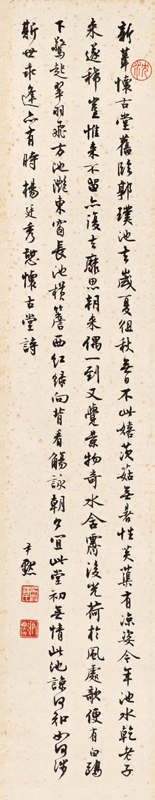 新葺懷古堂舊臨郭璞池去歲夏徂秋無日不此嬉茨菇無暑性芙蕖有涼姿今年池水乾老子
來遂稀豈惟來不留亦復去靡思朝來偶一到又覺景物奇水含霽後光荷於風處欹便有白鷗
下驚起翠羽飛方池灔東窗長池橫簷西紅綠向背看觴詠朝夕宜此堂初無情此池諒何知如何涉
斯世亦逢亦有時楊廷秀憩懷古堂詩
尹默
沈